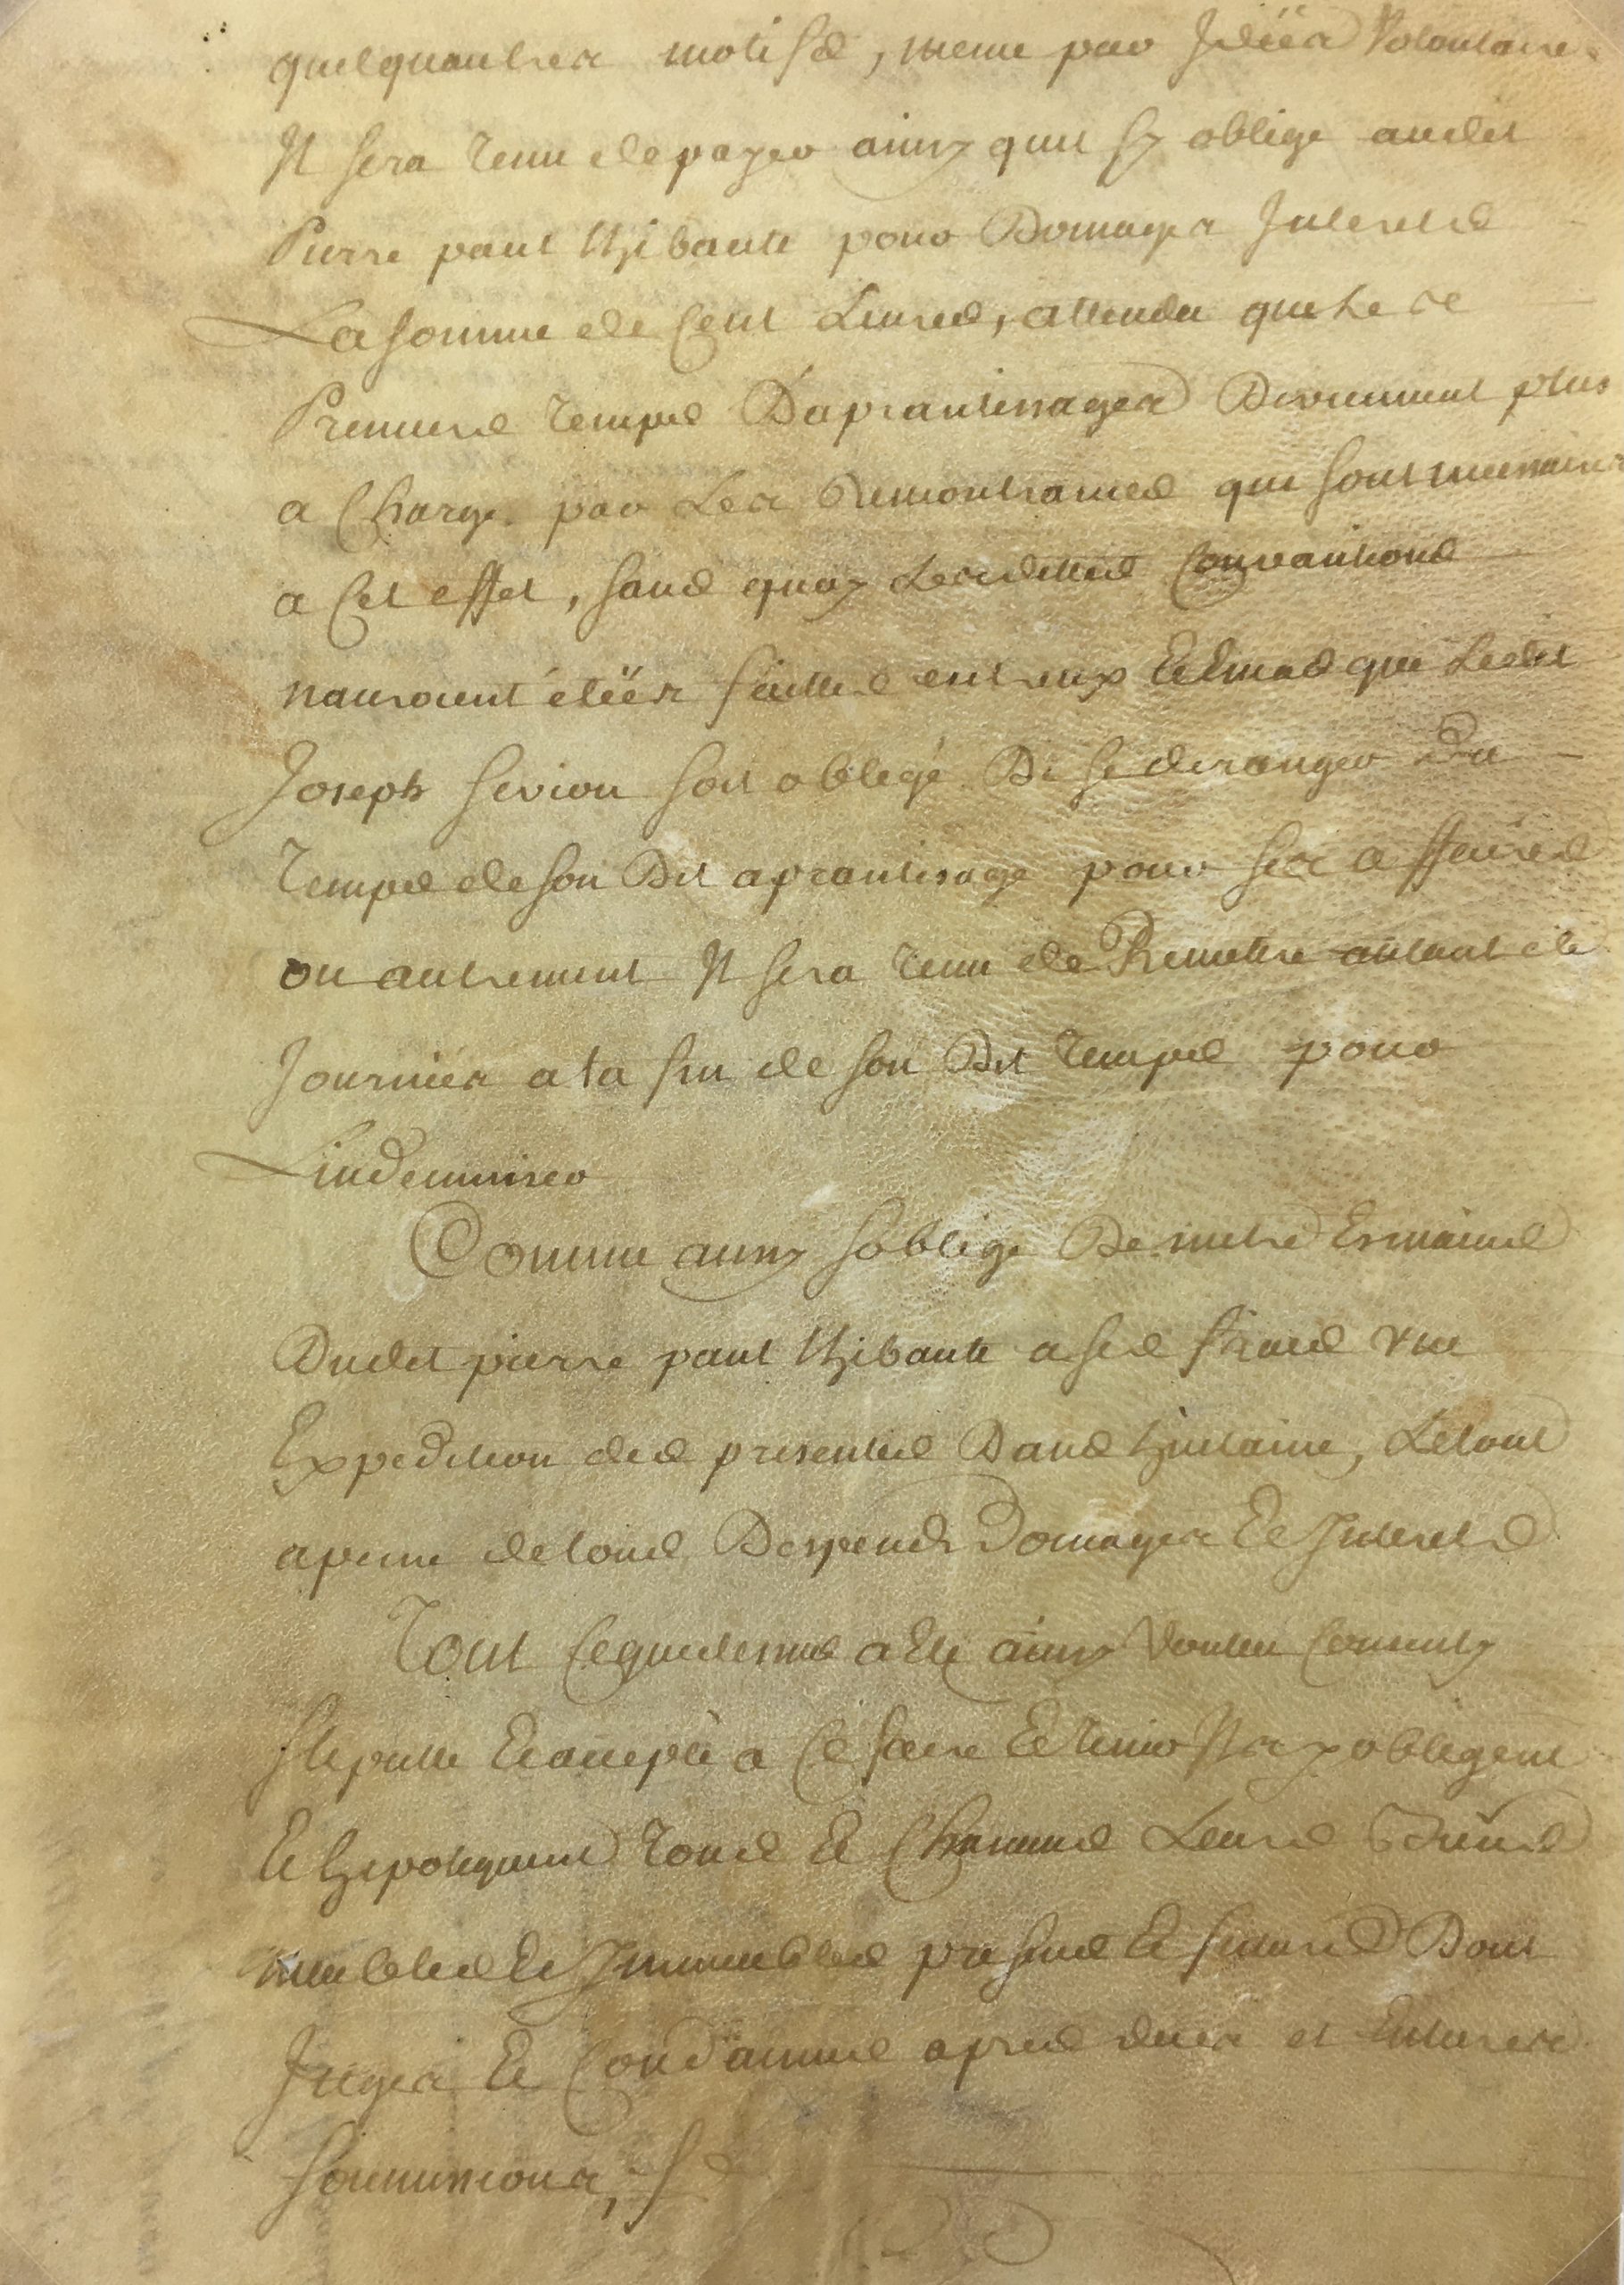 quelquautres motifs, meme par Idées Volontaire.
Il sera tenu de payer ainsy quil sy oblige audit
Pierre paul thibault pour Domages Interets
La somme de Cent Livres, attendu que les
Premiers temps Daprantissages Deviennent plus
a Charge par Les Remontrances qui sont necessaires
a Cet effet, sans quoy Lesdittes Convantions
nauroient étéés faittes entreux Et En cas que Ledit
Joseph sivion soit obligé De se deranger du
temps de son Dit aprantissage pour ses affaires
ou autrement Il sera tenu de Remettre autant de
Journées a la fin de son Dit temps pour
Lindemniser
Comme aussy soblige De metre Es mains
Dudit pierre paul thibault a ses frais une
Expedition des presentes Dans huitaine, Le tout
a peine de tous Despends Domages Et Interets
Tout Ce que dessus a Eté ainsy Voulu Consenty
Stipullé Et accepté a Ce faire Et tenir Ils y obligent
Et hipotequent tous Et Chacuns Leurs Biens
meubles Et Immeubles presens Et futurs Dont
Jugés Et Condamnés apres dues et Entieres
soummissions,